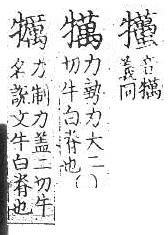 音
義同
力勢力大二
切牛白脊也
犡
力制力盖二切牛
名說文牛白脊也